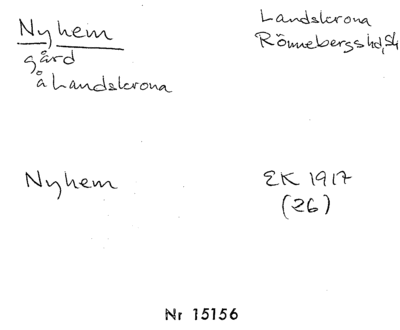 Nyhem
gård
å Landskrona
Landskrona
Rönnebergs hd, Sk
Nyhem
EK 1917
(26)
Nr 15156